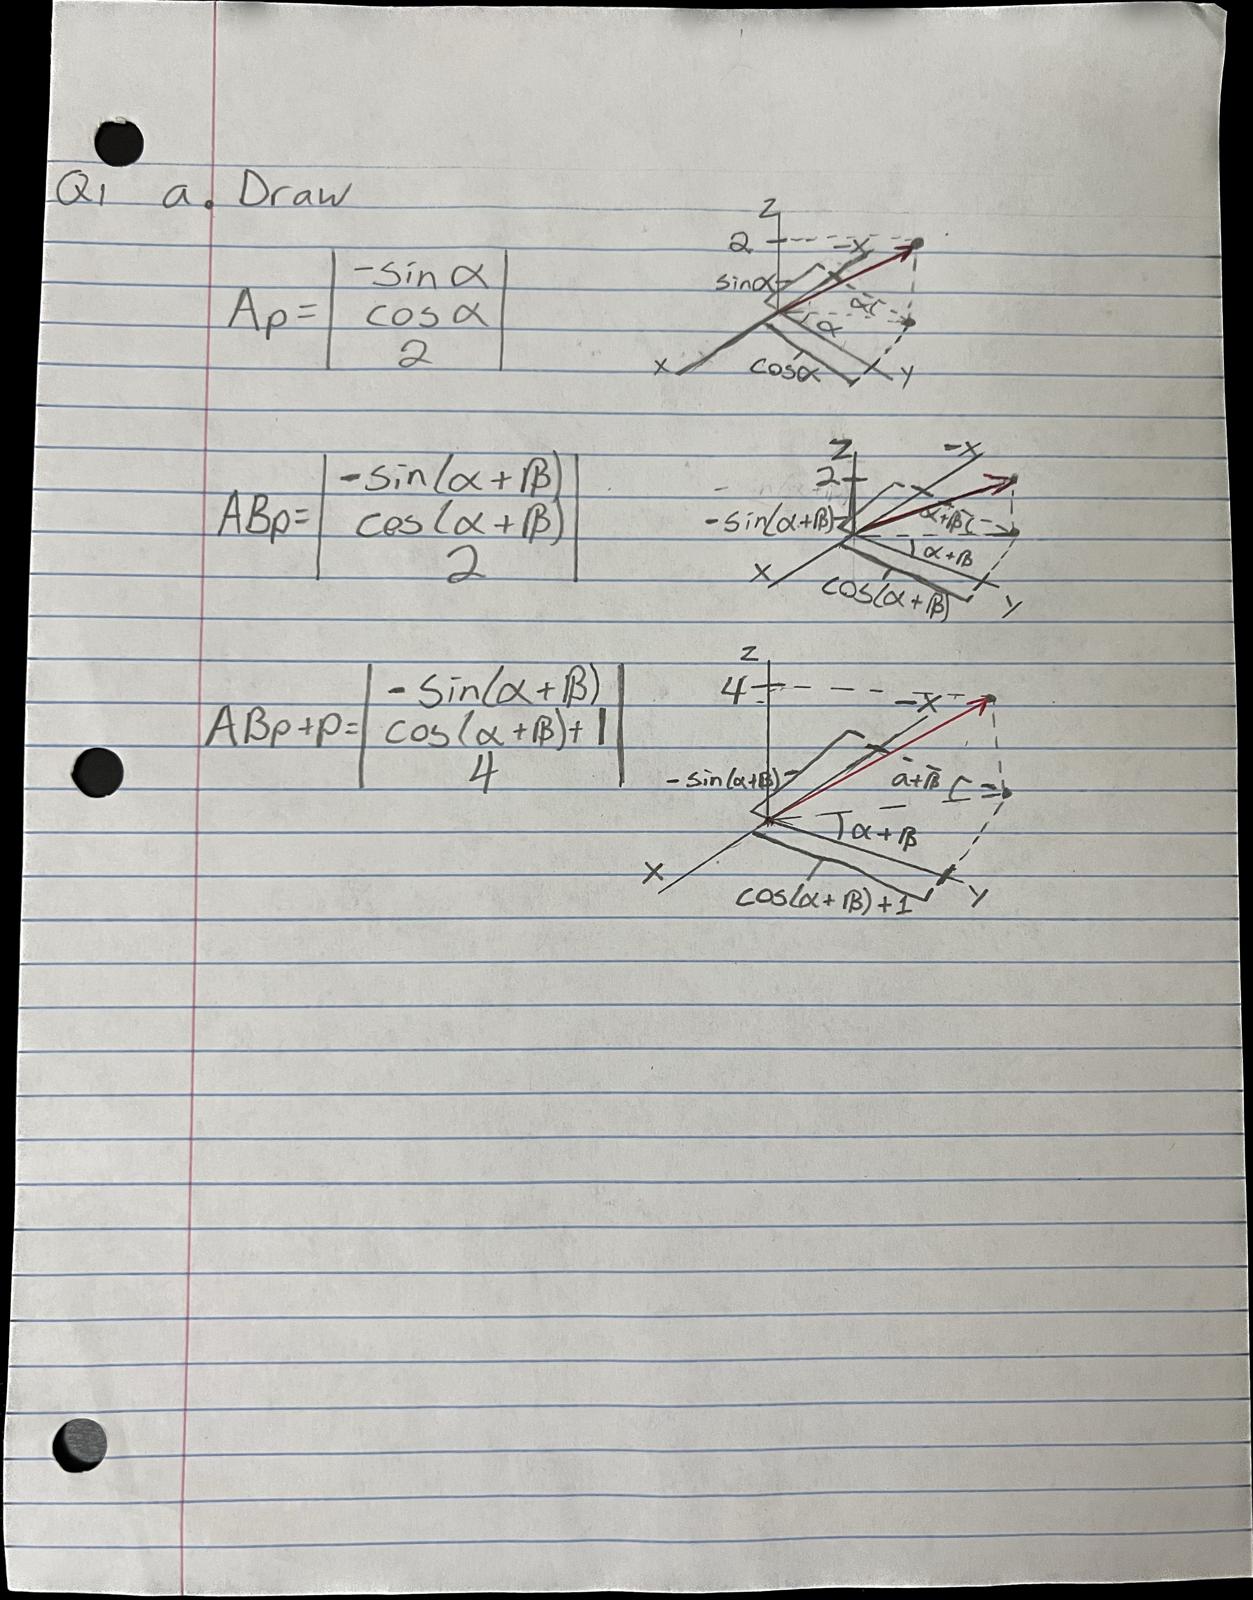 Q1 a. Draw
Ap = | -sin α |
| cos α |
| 2 |
z
2
-x
sinα
α
α
x
cosα
y
ABp = | -sin(α+β) |
| cos(α+β) |
| 2 |
z
-x
2
-sin(α+β)
α+β
α+β
x
cos(α+β)
y
ABp+p = | -sin(α+β) |
| cos(α+β)+1 |
| 4 |
z
4
-x
-sin(α+β)
a+β
α+β
x
cos(α+β)+1
y